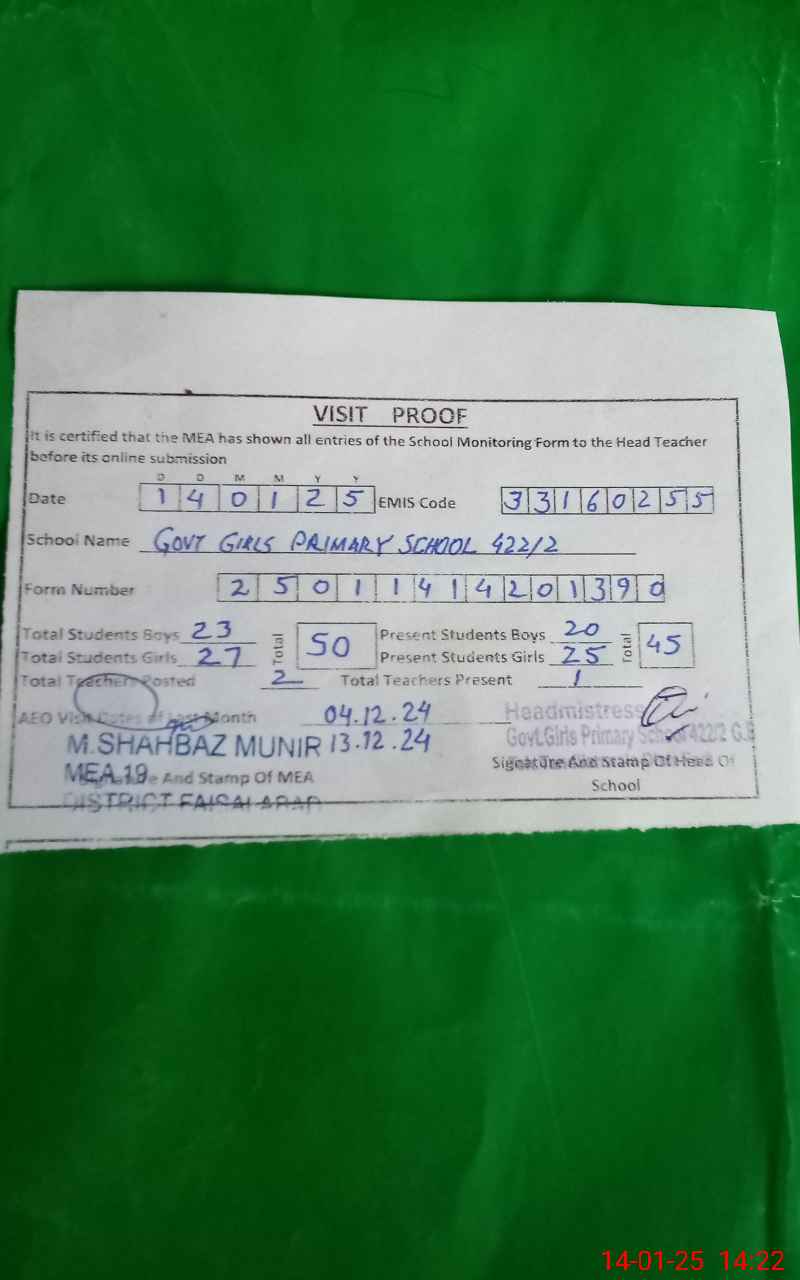 VISIT PROOF
It is certified that the MEA has shown all entries of the School Monitoring Form to the Head Teacher
before its online submission
D D M M Y Y
Date 1 4 0 1 2 5 EMIS Code 3 3 1 6 0 2 5 5
School Name GOVT GIRLS PRIMARY SCHOOL 422/2
Form Number 2 5 0 1 1 4 1 4 2 0 1 3 9 0
Total Students Boys 23 Total 50 Present Students Boys 20 Total 45
Total Students Girls 27 Present Students Girls 25
Total Teachers Posted 2 Total Teachers Present 1
AEO Visit Dates of Last Month 04.12.24 Headmistress
M.SHAHBAZ MUNIR 13.12.24 Govt.Girls Primary School 422/2 G.B
MEA 19 And Stamp Of MEA Signature And Stamp Of Head Of
School
DISTRICT FAISALABAD
14-01-25 14:22